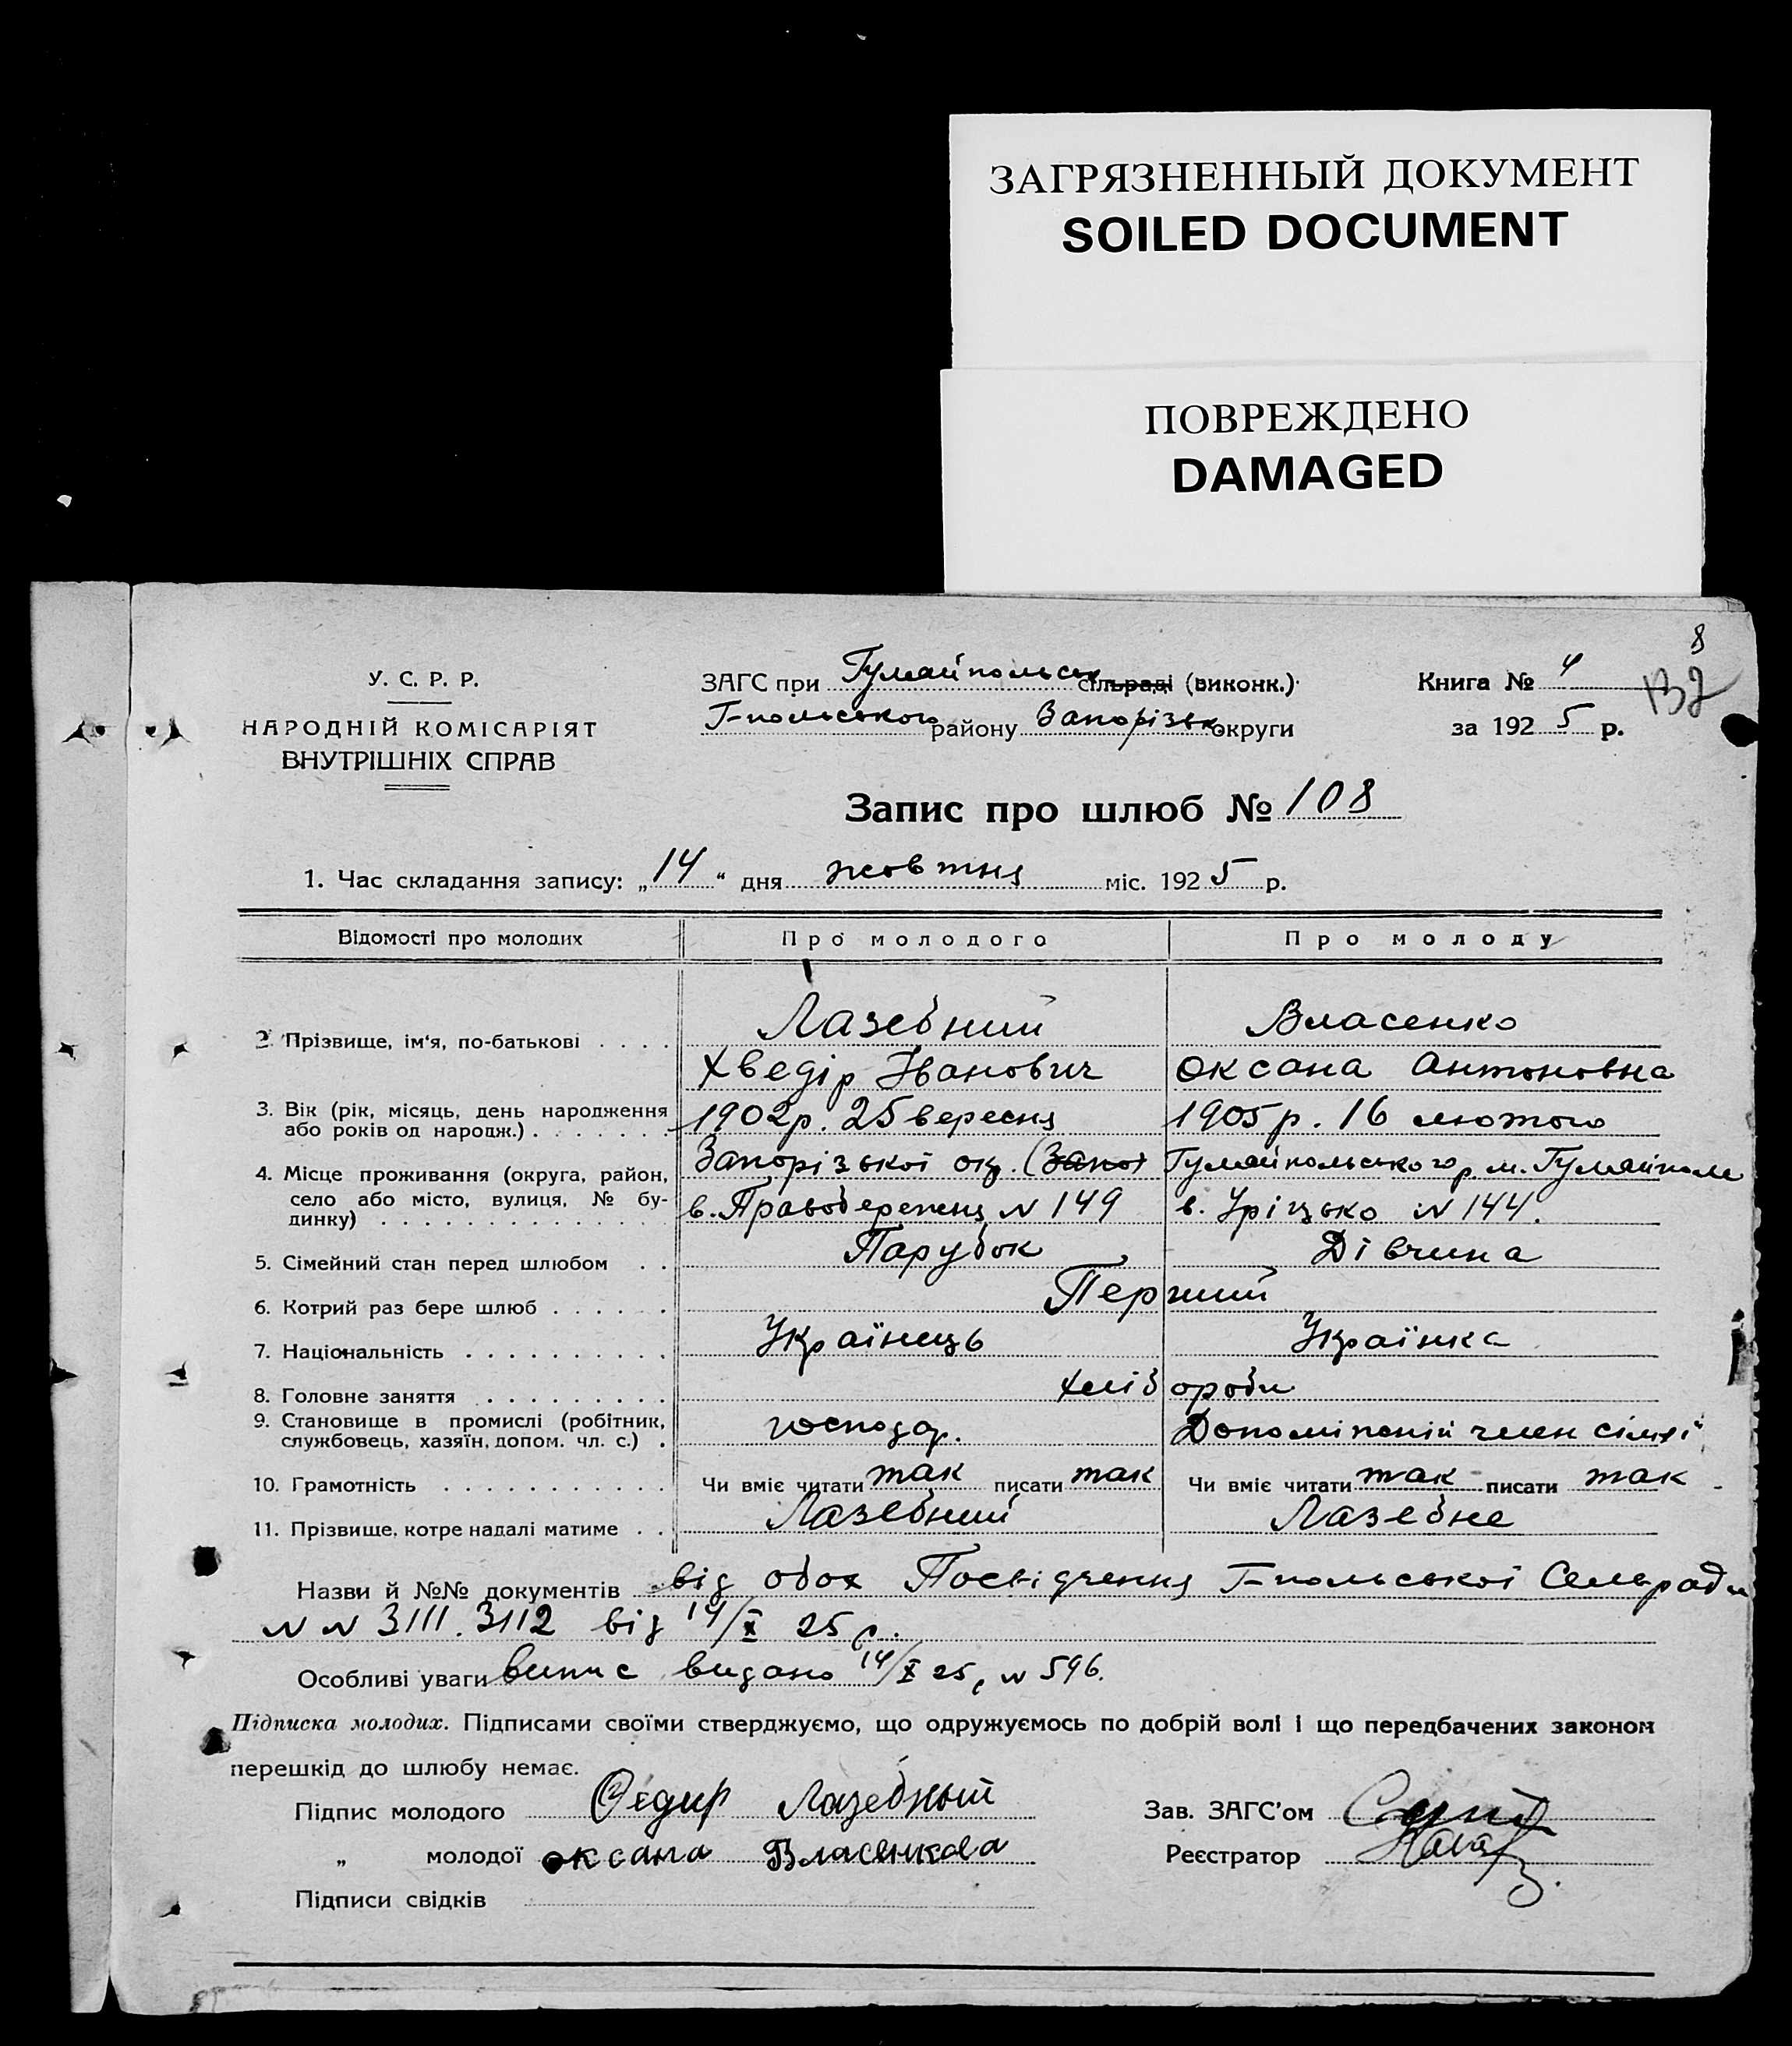 ЗАГРЯЗНЕННЫЙ ДОКУМЕНТ
SOILED DOCUMENT
ПОВРЕЖДЕНО
DAMAGED
8
132
У. С. Р. Р.
НАРОДНІЙ КОМІСАРІЯТ
ВНУТРІШНІХ СПРАВ
ЗАГС при Гуляйпольськ сільраді (виконк.)
Г-польського району Запорізьк округи
Книга № 4
за 1925 р.
Запис про шлюб № 108
1. Час складання запису: „14“ дня жовтня міс. 1925 р.
Відомості про молодих Про молодого Про молоду
2. Прізвище, ім'я, по-батькові . . . . Лазебний Власенко
Хведір Іванович Оксана Антоновна
3. Вік (рік, місяць, день народження або років од народж.) . . . . . . . 1902р. 25 вересня 1905р. 16 лютого
4. Місце проживання (округа, район, село або місто, вулиця, № будинку) . . . . . . . . . . . . . . Запорізької окр. (Запоі Гуляйпольського р. м. Гуляйполе
в. Правобережна N 149 в. Уріцько N 144.
5. Сімейний стан перед шлюбом . . Парубок Дівчина
6. Котрий раз бере шлюб . . . . . . Перший
7. Національність . . . . . . . . . . Українець Українка
8. Головне заняття . . . . . . . . . Хліб ороби
9. Становище в промислі (робітник, службовець, хазяїн, допом. чл. с.) . господар. Допоміжній член сімьї
10. Грамотність . . . . . . . . . . . Чи вміє читати так писати так Чи вміє читати так писати так
11. Прізвище, котре надалі матиме . . Лазебний Лазебне
Назви й №№ документів від обох Посвідчення Г-польської Сельради
N N 3111. 3112 від 14/X 25 р.
Особливі уваги випис видано 14/X 25 р N 596.
Підписка молодих. Підписами своїми стверджуємо, що одружуємось по добрій волі і що передбачених законом
перешкід до шлюбу немає.
Підпис молодого Федир Лазебный Зав. ЗАГС'ом
„ молодої оксана Власенкова Реєстратор
Підписи свідків